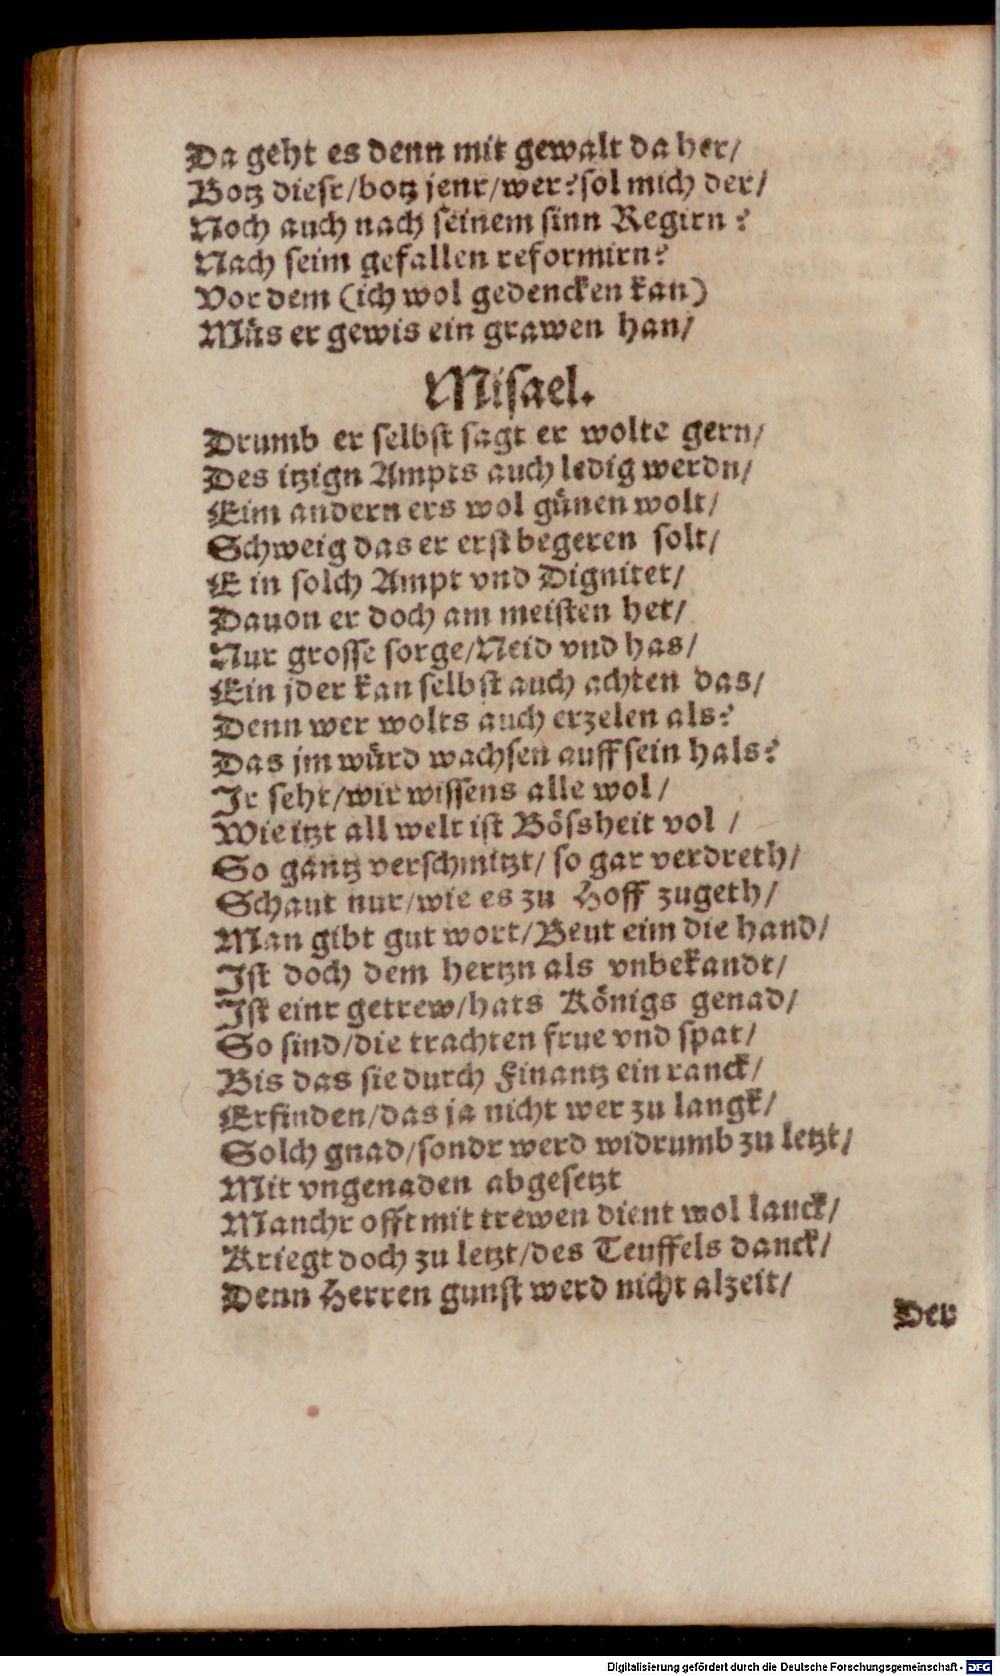 Da geht es denn mit gewalt da her/
Botz diesr/botz jenr/wer? sol mich der/
Noch auch nach seinem sinn Regirn?
Nach seim gefallen reformirn?
Vor dem (ich wol gedencken kan)
Müs er gewis ein grawen han/
Misael.
Drumb er selbst sagt er wolte gern/
Des itzign Ampts auch ledig werdn/
Eim andern ers wol günen wolt/
Schweig das er erst begeren solt/
Ein solch Ampt vnd Dignitet/
Dauon er doch am meisten het/
Nur grosse sorge/Neid vnd has/
Ein jder kan selbst auch achten das/
Denn wer wolts auch erzelen als?
Das jm würd wachsen auff sein hals?
Jr seht/wir wissens alle wol/
Wie itzt all welt ist Bössheit vol/
So gantz verschmitzt/ so gar verdreth/
Schaut nur/wie es zu Hoff zugeth/
Man gibt gut wort/Beut eim die hand/
Jst doch dem hertzn als vnbekandt/
Jst einr getrew/hats Königs genad/
So sind/die trachten frue vnd spat/
Bis das sie durch Finantz ein ranck/
Erfinden/das ja nicht wer zu langk/
Solch gnad/sondr werd widrumb zu letzt/
Mit vngenaden abgesetzt
Manchr offt mit trewen dient wol lanck/
Kriegt doch zu letzt/des Teuffels danck/
Denn Herren gunst werd nicht alzeit/
Der
Digitalisierung gefördert durch die Deutsche Forschungsgemeinschaft - DFG